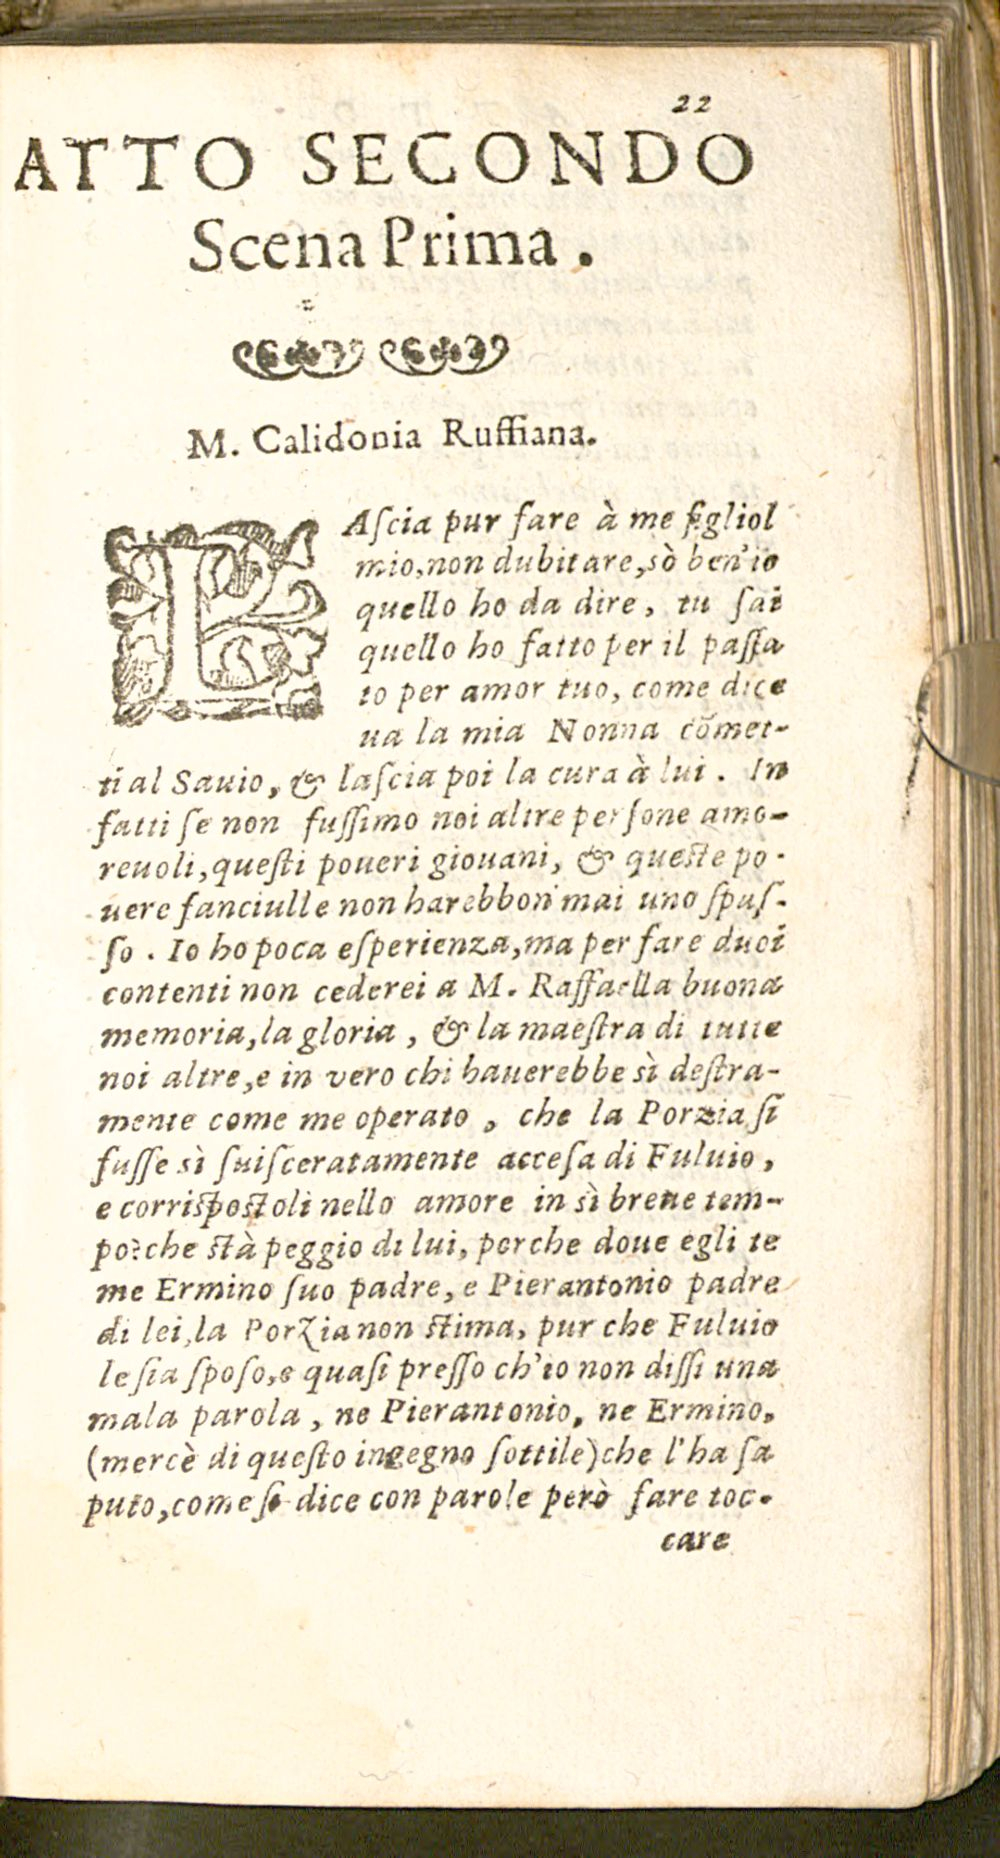 22
ATTO SECONDO
Scena Prima.
M. Calidonia Ruffiana.
LAſcia pur fare à me figliol
mio, non dubitare, sò ben'io
quello ho da dire, tu ſai
quello ho fatto per il paſſa
to per amor tuo, come dice
ua la mia Nonna cōmet-
ti al Sauio, & laſcia poi la cura à lui. In
fatti ſe non fuſſimo noi altre perſone amo-
reuoli, queſti poueri giouani, & queſte po-
uere fanciulle non harebbon mai uno ſpaſ-
ſo. Io ho poca eſperienza, ma per fare duoi
contenti non cederei a M. Raffaella buona
memoria, la gloria, & la maeſtra di tutte
noi altre, e in vero chi hauerebbe sì deſtra-
mente come me operato, che la Porzia ſi
fuſſe sì ſuiſceratamente acceſa di Fuluio,
e corriſpoſtoli nello amore in sì breue tem-
po? che ſtà peggio di lui, perche doue egli te
me Ermino ſuo padre, e Pierantonio padre
di lei, la Porzia non ſtima, pur che Fuluio
le ſia ſpoſo, e quaſi preſſo ch'io non diſſi una
mala parola, ne Pierantonio, ne Ermino,
(mercè di queſto ingegno ſottile) che l'ha ſa
puto, come ſi dice con parole però fare toc-
care